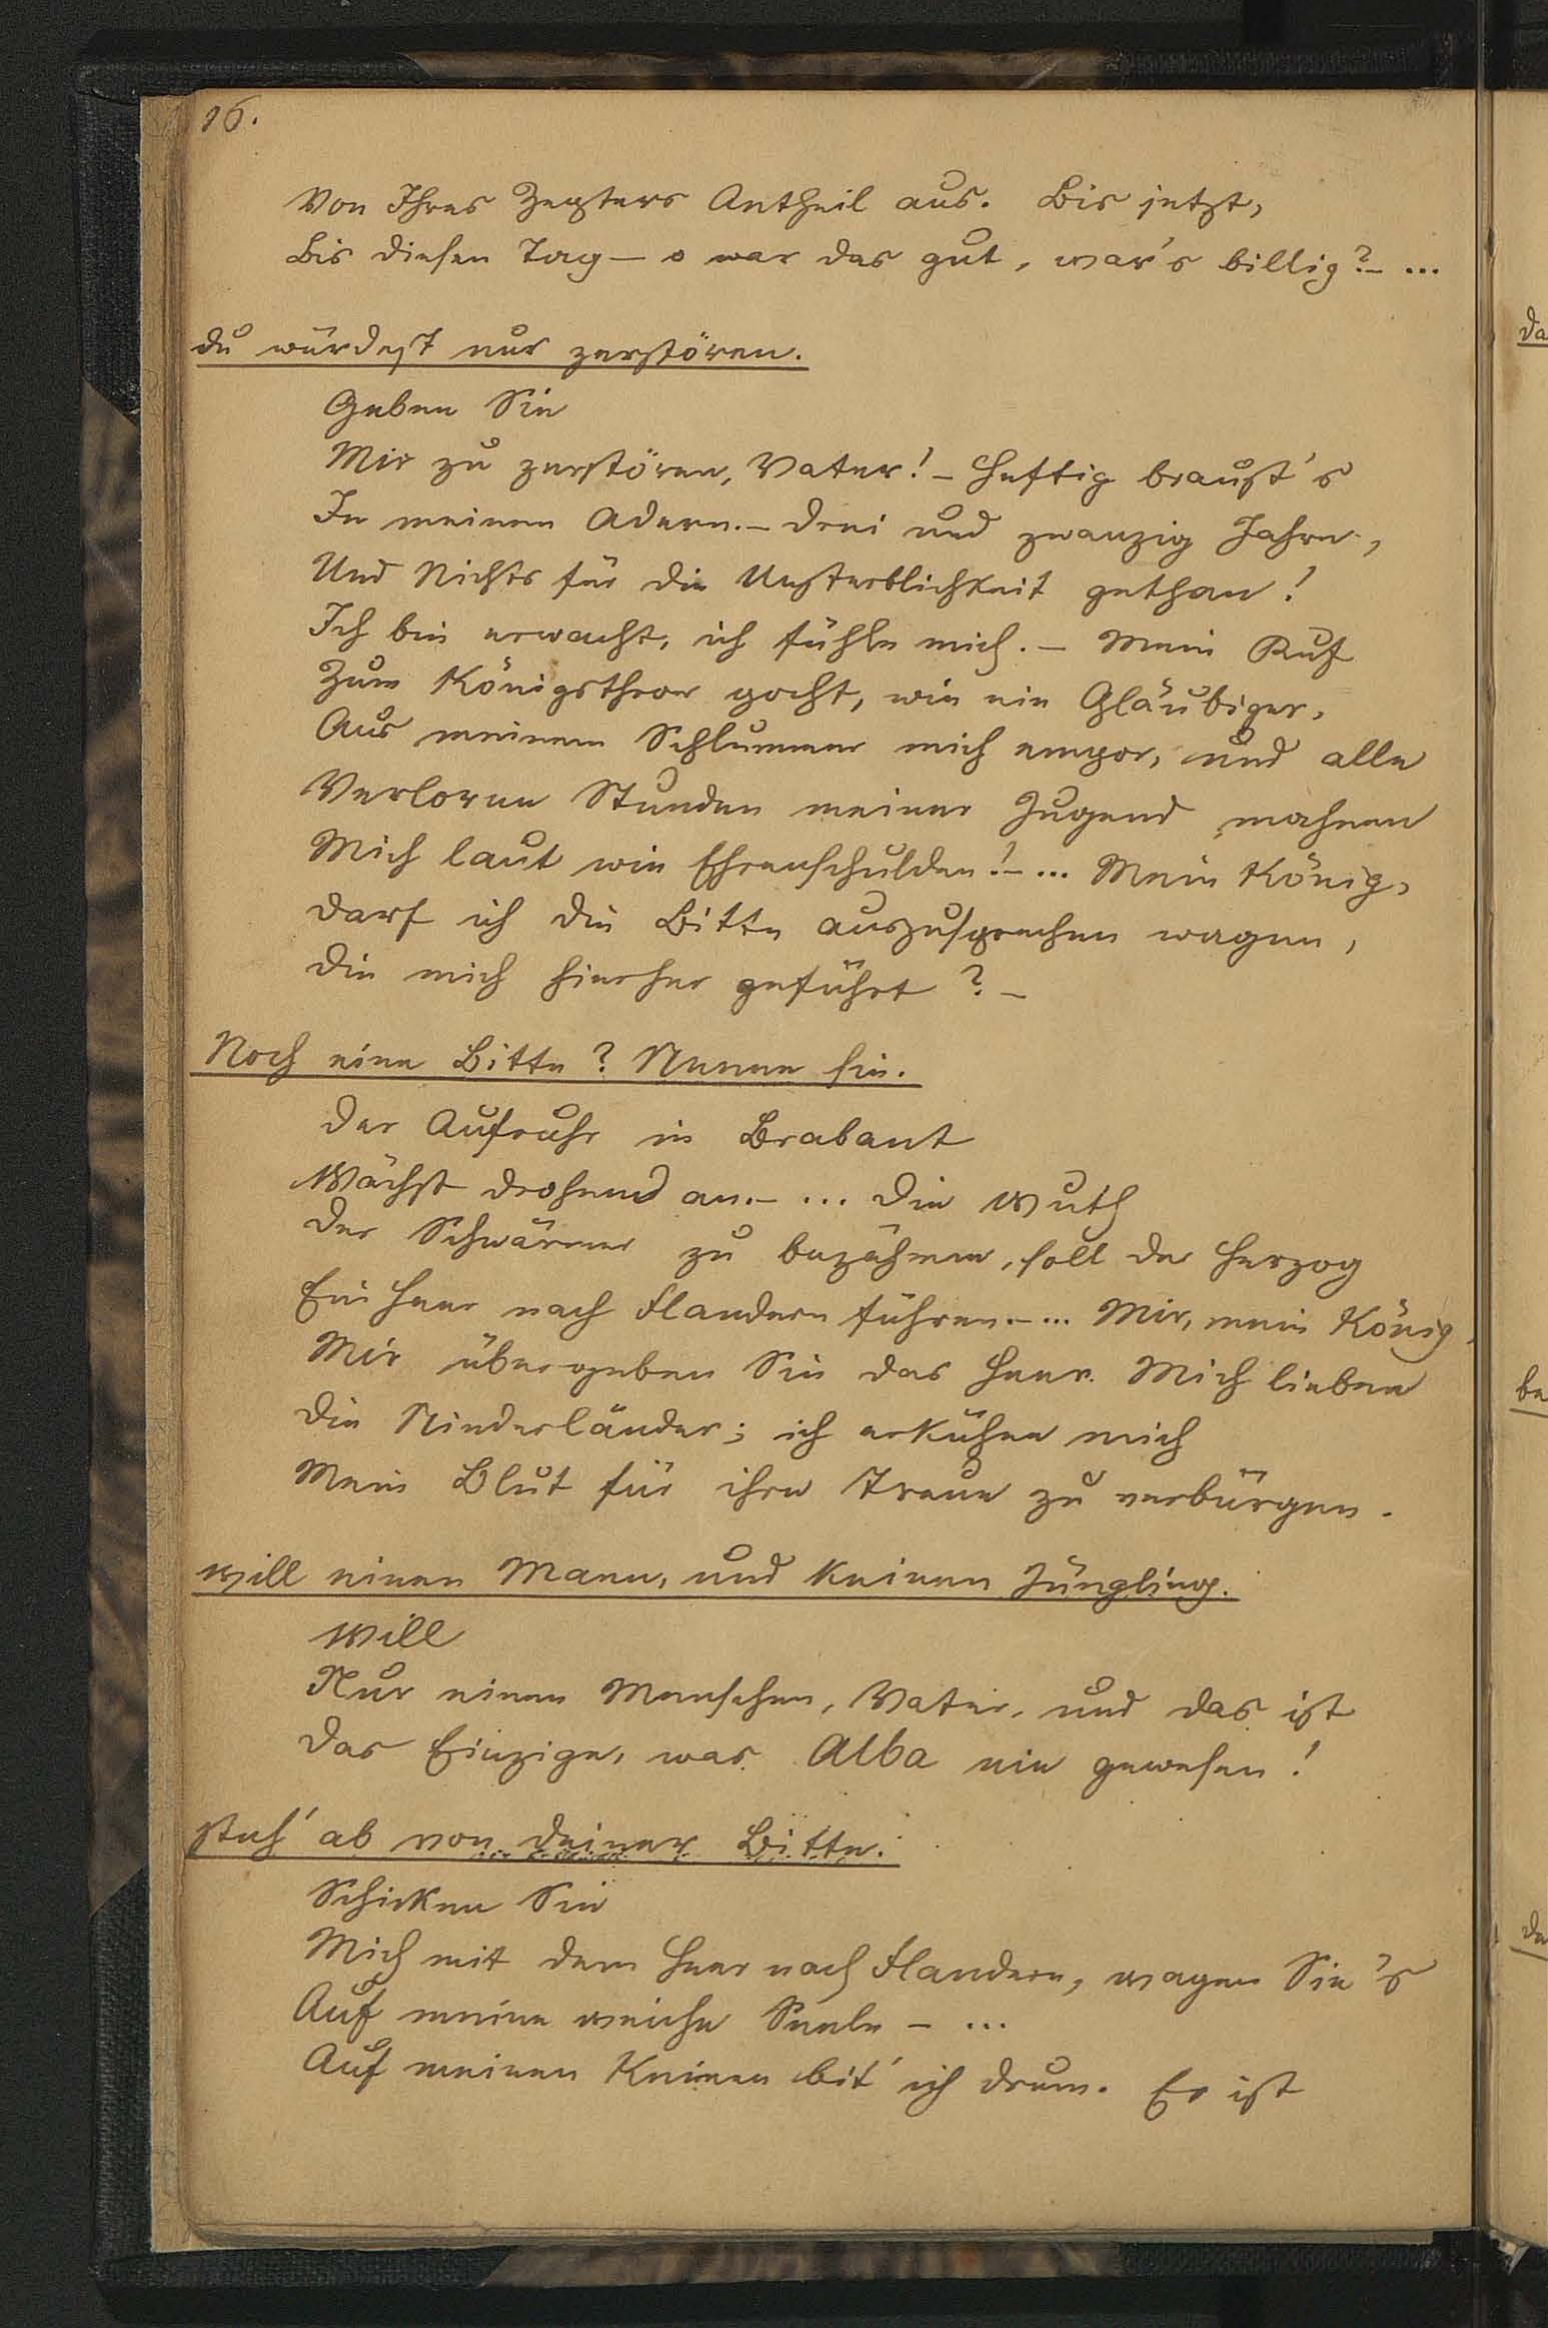 16.
Von Ihres Zepters Antheil aus. Bis jetzt,
Bis diesen Tag – o war das gut, war's billig? – ...
du würdest nur zerstören.
Geben Sie
Mir zu zerstören, Vater! – Heftig braust's
In meinen Adern. – Drei und zwanzig Jahre,
Und Nichts für die Unsterblichkeit gethan!
Ich bin erwacht, ich fühle mich. – Mein Ruf
Zum Königsthron pocht, wie ein Gläubiger,
Aus meinem Schlummer mich empor, und alle
Verloren Stunden meiner Jugend mahnen
Mich laut wie Ehrenschulden! – ... Mein König,
Darf ich die Bitte auszusprechen wagen,
Die mich hierher geführt? –
Noch eine Bitte? Nenne sie.
Der Aufruhr in Brabant
Wächst drohend an. – ... Die Wuth
Der Schwärmer zu bezähmen, soll der Herzog
Ein Heer nach Flandern führen. – ... Mir, mein König,
Mir übergeben Sie das Heer. Mich lieben
Die Niederländer; ich erkühne mich
Mein Blut für ihre Treue zu verbürgen.
Will einen Mann, und keinen Jüngling.
Will
Nur einen Menschen, Vater, und das ist
Das Einzige, was Alba nie gewesen!
steh' ab von deiner Bitte.
Schicken Sie
Mich mit dem Heer nach Flandern, wagen Sie's
Auf meine weiche Seele – ...
Auf meinen Knieen bit' ich drum. Es ist
Da
be
da